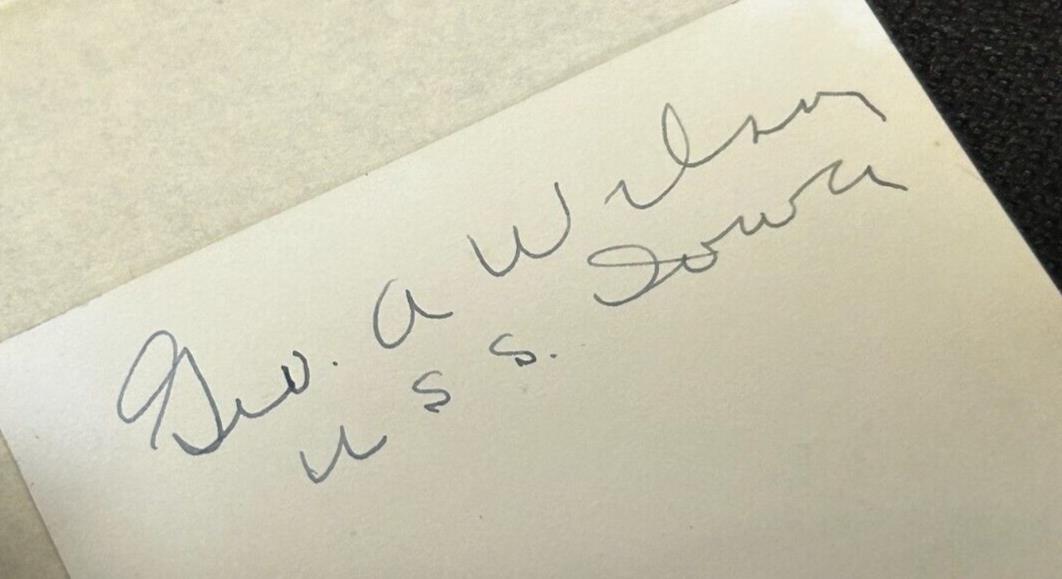 Geo. A Wilson
U S S. Iowa